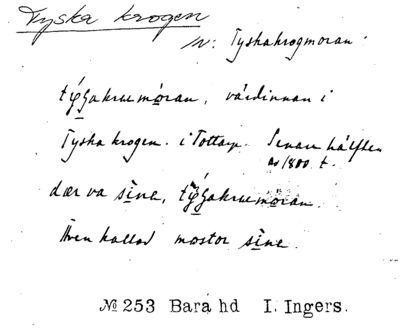 Tyska krogen
sv: Tyskakrogmoran.
värdinnan i
Tyska krogen. i Tottarp. Senare hälften
av 1800 t.
dær va sine,
Även kallad mostor sine.
№ 253 Bara hd I. Ingers.